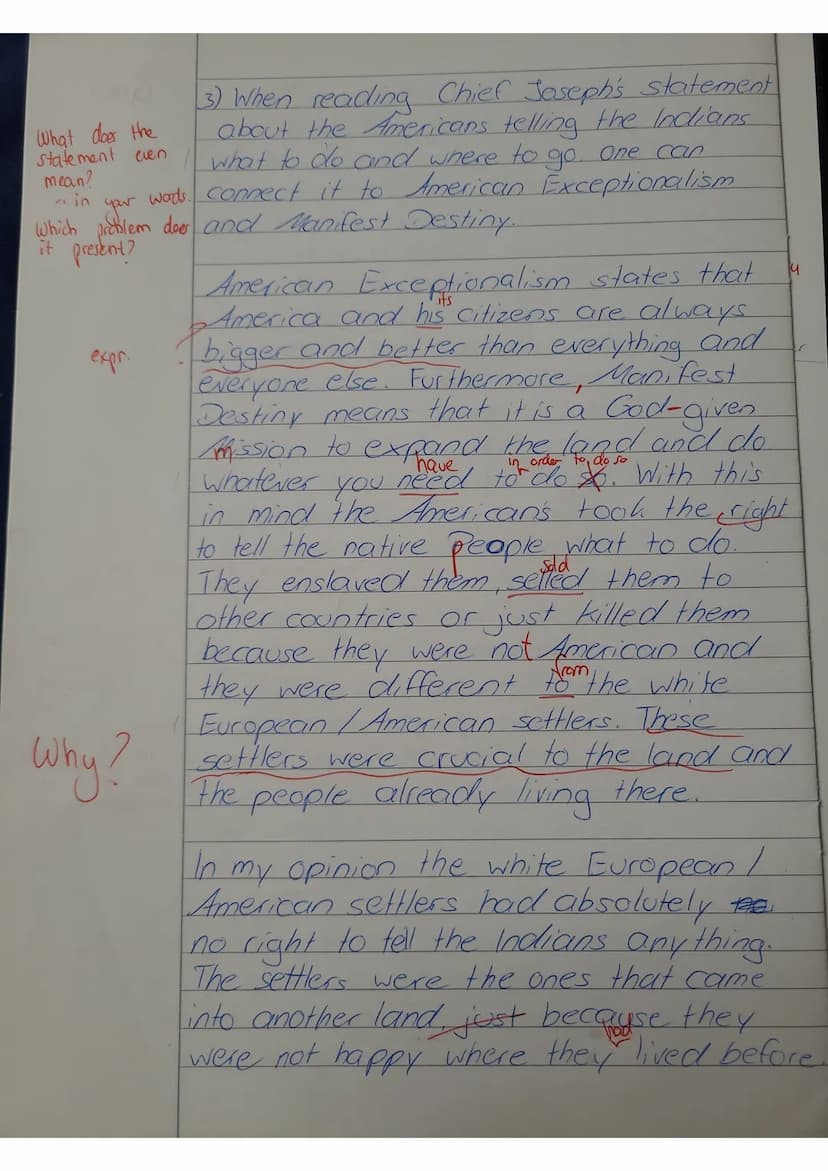 3) When reading Chief Joseph's statement
about the Americans telling the Indians
What does the
statement even
mean?
what to do and where to go one can
.. in your words.
connect it to American Exceptionalism
Which problem does
it present?
and Manifest Destiny.
American Exceptionalism states that
4
its
America and his citizens are always
expr.
?
bigger and better than everything and
everyone else. Furthermore, Manifest
Destiny means that it is a God-given
Mission to expand the land and do
have in order to do so
whatever you need to do so. With this
in mind the American's took the right
to tell the native People what to do.
sold
They enslaved them, selled them to
other countries or just killed them
because they were not American and
from
they were different to the white
European / American settlers. These
Why?
settlers were crucial to the land and
the people already living there.
In my opinion the white European /
American settlers had absolutely
no right to tell the Indians anything.
The settlers were the ones that came
into another land, just because they
had
were not happy where they lived before.